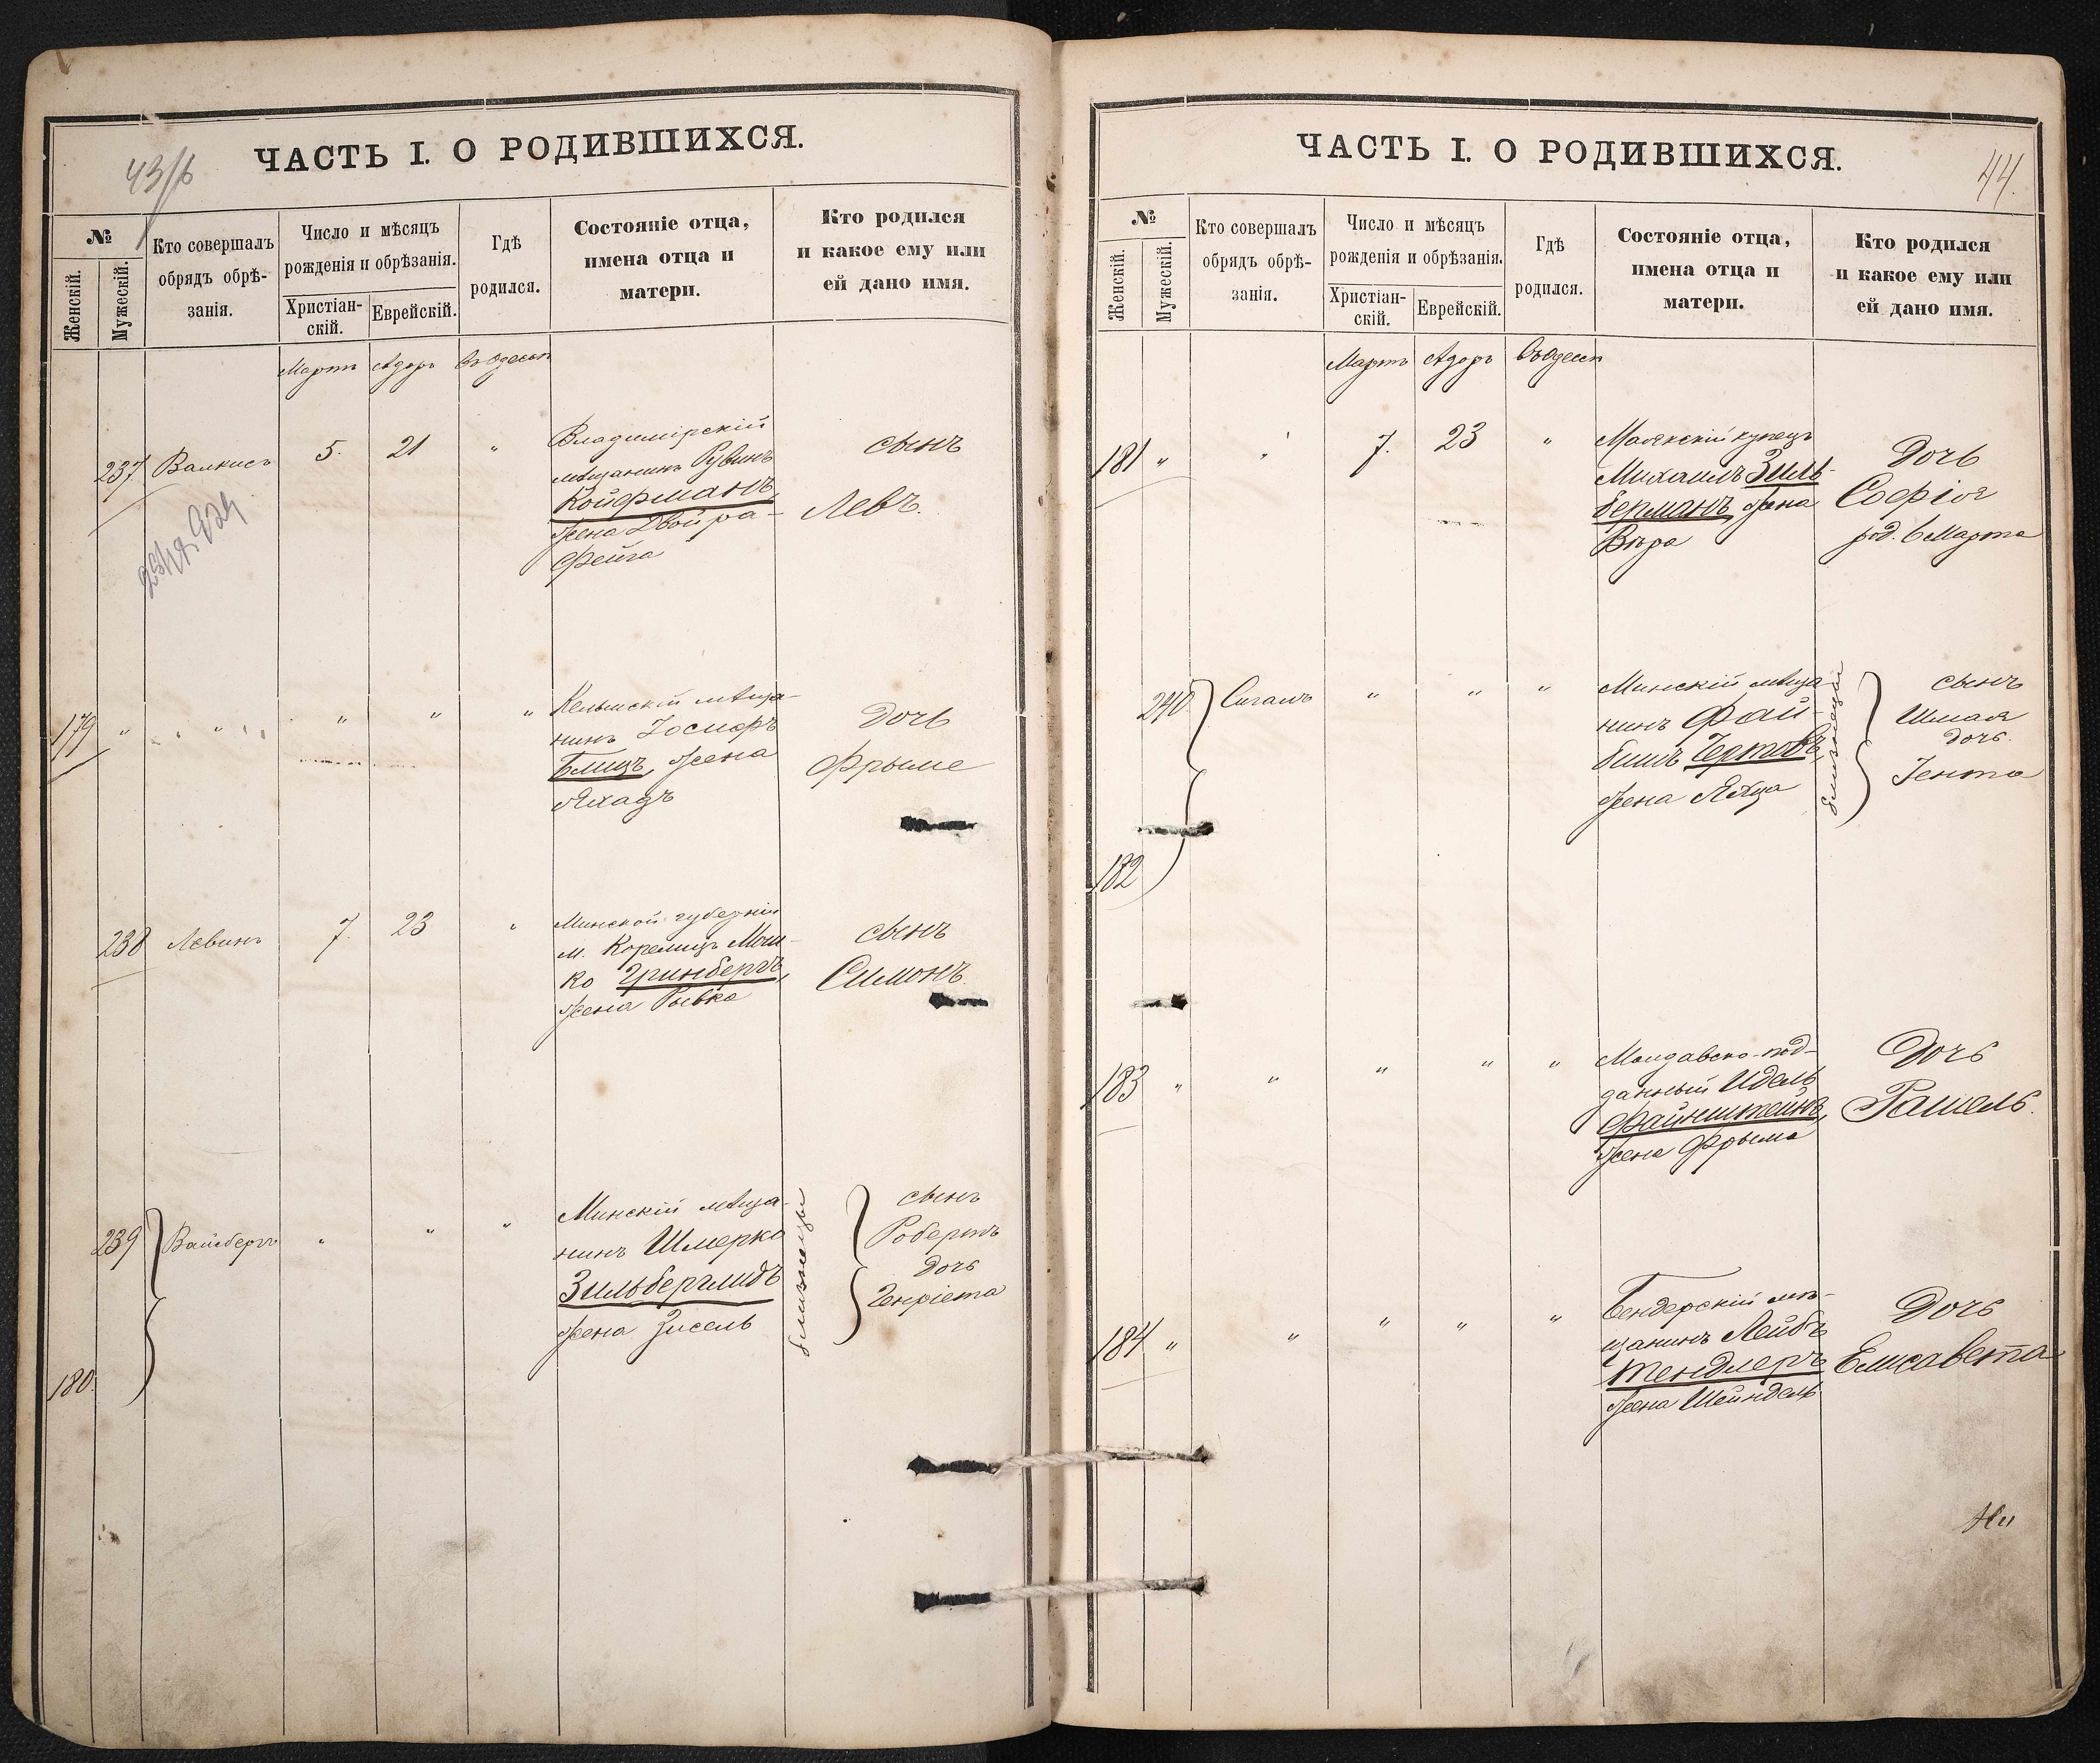 43/б
ЧАСТЬ I. О РОДИВШИХСЯ.
№
Женскій.
Мужескій.
Кто совершалъ
обрядъ обрѣ-
занія.
Число и мѣсяцъ
рожденія и обрѣзанія.
Христіан-
скій.
Еврейскій.
Гдѣ
родился.
Состояніе отца,
имена отца и
матери.
Кто родился
и какое ему или
ей дано имя.
Мартъ Адоръ Въ Одессѣ
237 Валкисъ 5. 21 "
Владимірскій
мѣщанинъ Рувинъ
Койфманъ,
жена Двойра-
Фейга
сынъ
Левъ.
179 " " " " "
Кельцскій мѣща-
нинъ Іосифъ
Блицъ, жена
Яхадъ
Дочь
Фрыме
238 Левинъ 7. 23 "
Минской губерніи
м. Корелицъ Мош-
ко Гринбергъ,
жена Рывка
сынъ
Симонъ.
239 Вайсбергъ " " "
180
Минскій мѣща-
нинъ Шмерко
Зильберглидъ
жена Зисель
близнецы
сынъ
Робертъ
дочь
Генріета
44.
ЧАСТЬ I. О РОДИВШИХСЯ.
№
Женскій.
Мужескій.
Кто совершалъ
обрядъ обрѣ-
занія.
Число и мѣсяцъ
рожденія и обрѣзанія.
Христіан-
скій.
Еврейскій.
Гдѣ
родился.
Состояніе отца,
имена отца и
матери.
Кто родился
и какое ему или
ей дано имя.
Мартъ Адоръ Въ Одессѣ
181 " " 7. 23 "
Маякскій купецъ
Михаилъ Зиль-
берманъ, жена
Вѣра
Дочь
Софія
род. 6 Марта
240 Сигалъ " " "
182
Минскій мѣща-
нинъ Фай-
бишъ Чертовъ,
жена
близнецы
сынъ
Шмая
дочь.
Іента
183 " " " " "
Молдавско-под-
данный Идель
Файнштейнъ,
жена Фрыма
Дочь
Рашель.
184 " " " " "
Бендерскій мѣ-
щанинъ Лейбъ
Тендлеръ
жена Шейндель
Дочь
Елисавета